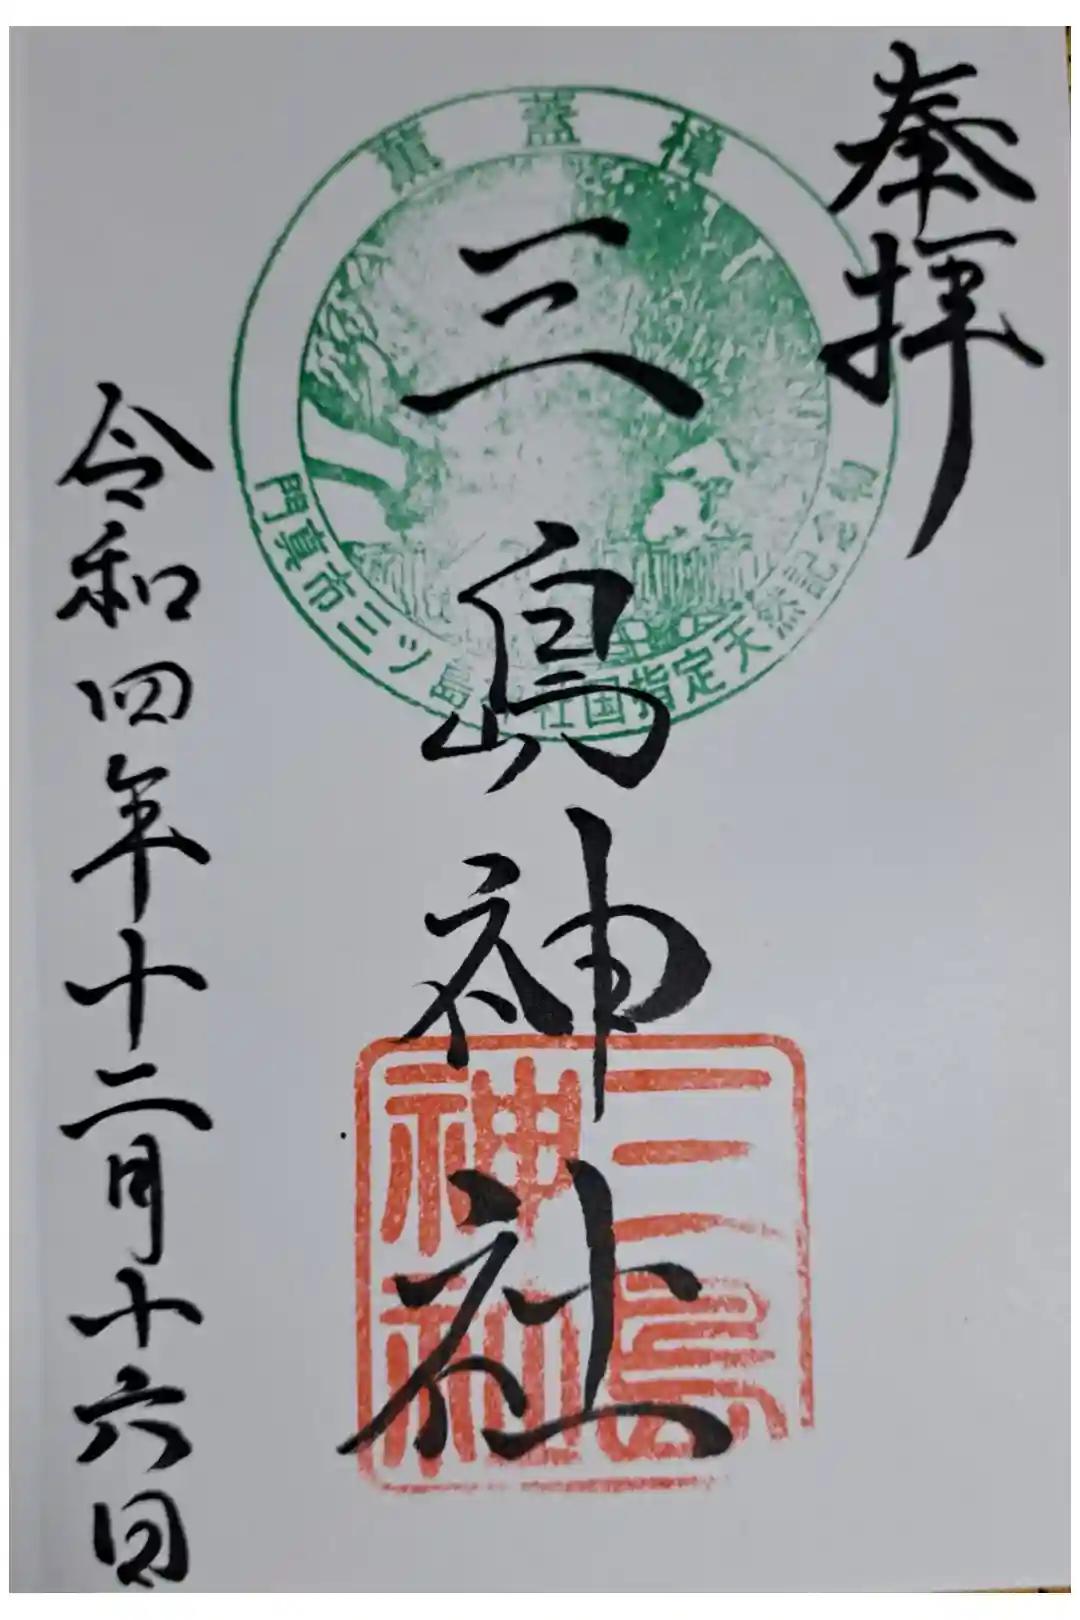 奉拝
薫蓋樟
門真市三ツ島神社国指定天然記念物
三島神社
三島
神社
令和四年十二月十六日